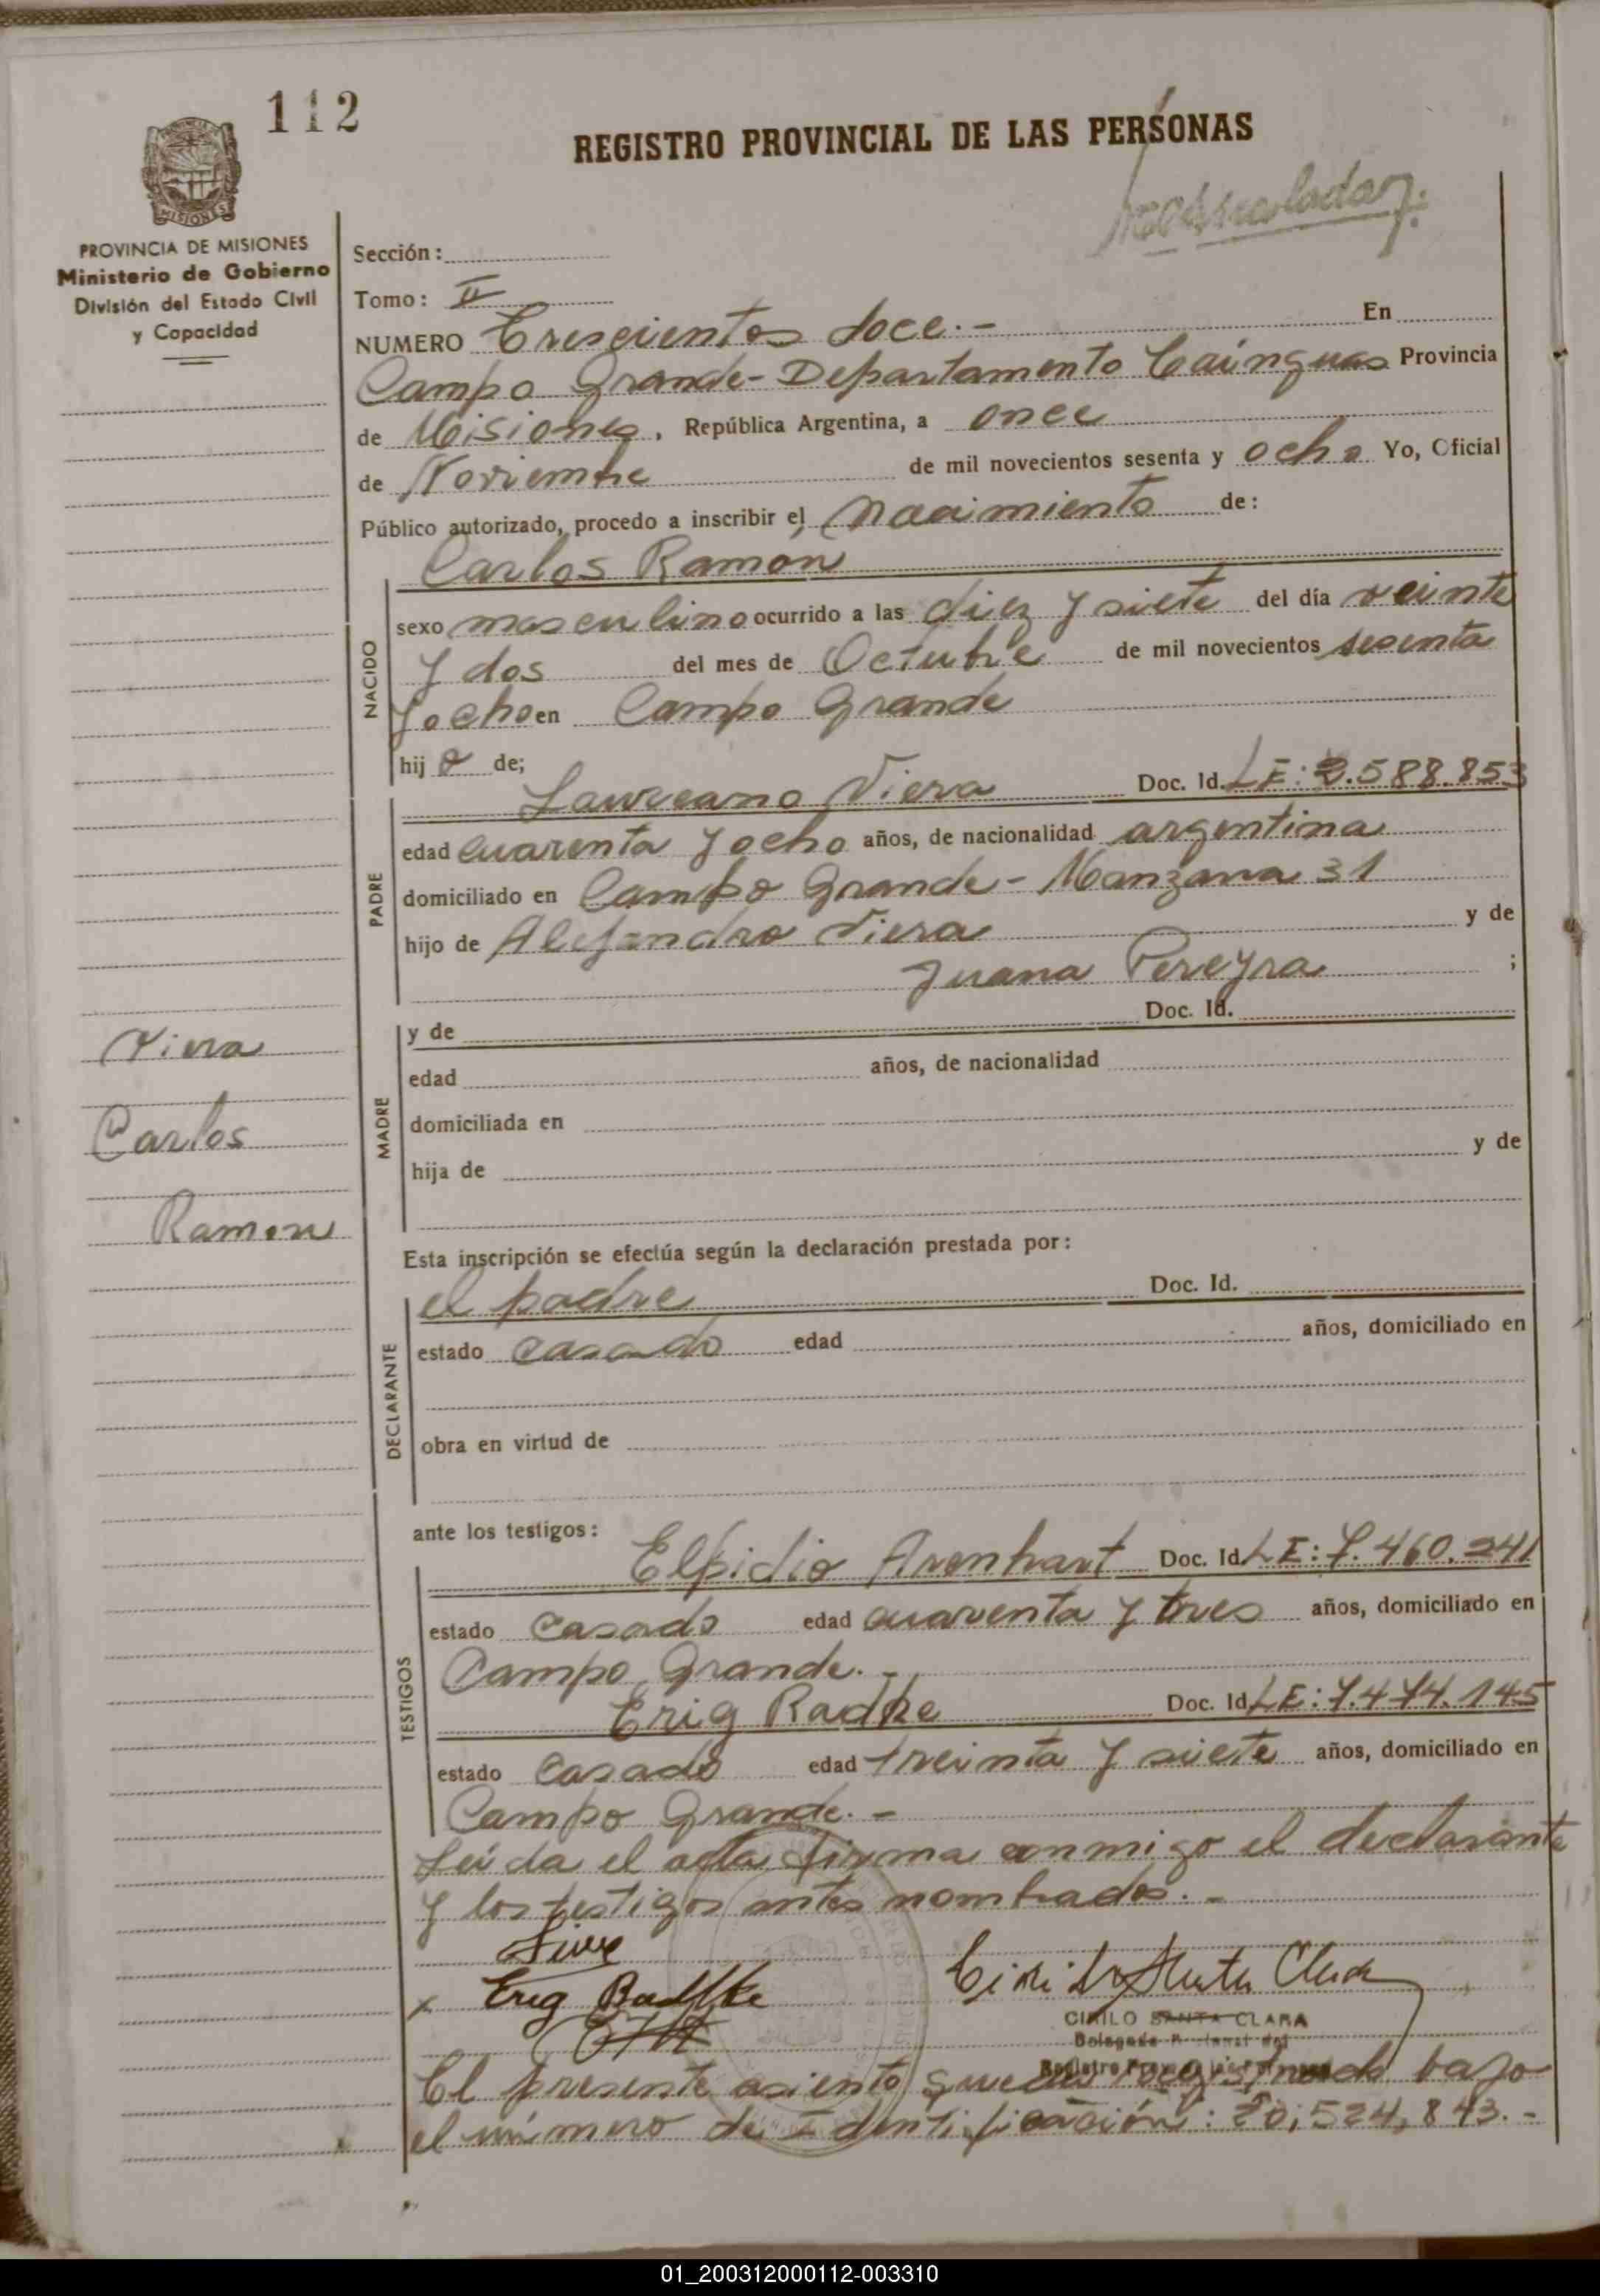 112
REGISTRO PROVINCIAL DE LAS PERSONAS
MISIONES
PROVINCIA DE MISIONES
Ministerio de Gobierno
División del Estado Civil
y Capacidad
Sección:
Tomo: II
NUMERO Trescientos doce.- En
Campo Grande - Departamento Cainguas Provincia
de Misiones, República Argentina, a once
de Noviembre de mil novecientos sesenta y ocho Yo, Oficial
Público autorizado, procedo a inscribir el nacimiento de:
Carlos Ramon
NACIDO
sexo masculino ocurrido a las diez y siete del día veinte
y dos del mes de Octubre de mil novecientos sesenta
y ocho en Campo Grande
hijo de;
PADRE
Laureano Viera Doc. Id. LE: 2.588.853
edad cuarenta y ocho años, de nacionalidad argentina
domiciliado en Campo Grande - Manzana 31
hijo de Alejandro Viera y de
Juana Pereyra ;
MADRE
y de Doc. Id.
edad años, de nacionalidad
domiciliada en
hija de y de
Viera
Carlos
Ramon
Esta inscripción se efectúa según la declaración prestada por:
DECLARANTE
el padre Doc. Id.
estado casado edad años, domiciliado en
obra en virtud de
ante los testigos:
TESTIGOS
Elpidio Arenhart Doc. Id. LE: 7.460.241
estado casado edad cuarenta y tres años, domiciliado en
Campo Grande.-
Erig Radke Doc. Id. LE: 7.474.145
estado casado edad treinta y siete años, domiciliado en
Campo Grande.-
Leída el acta firma conmigo el declarante
y los testigos antes nombrados.-
Erig Radtke
Cirilo Santa Clara
CIRILO SANTA CLARA
El presente asiento queda registrado bajo
el número de Identificación: 20,524,843.-
01_200312000112-003310